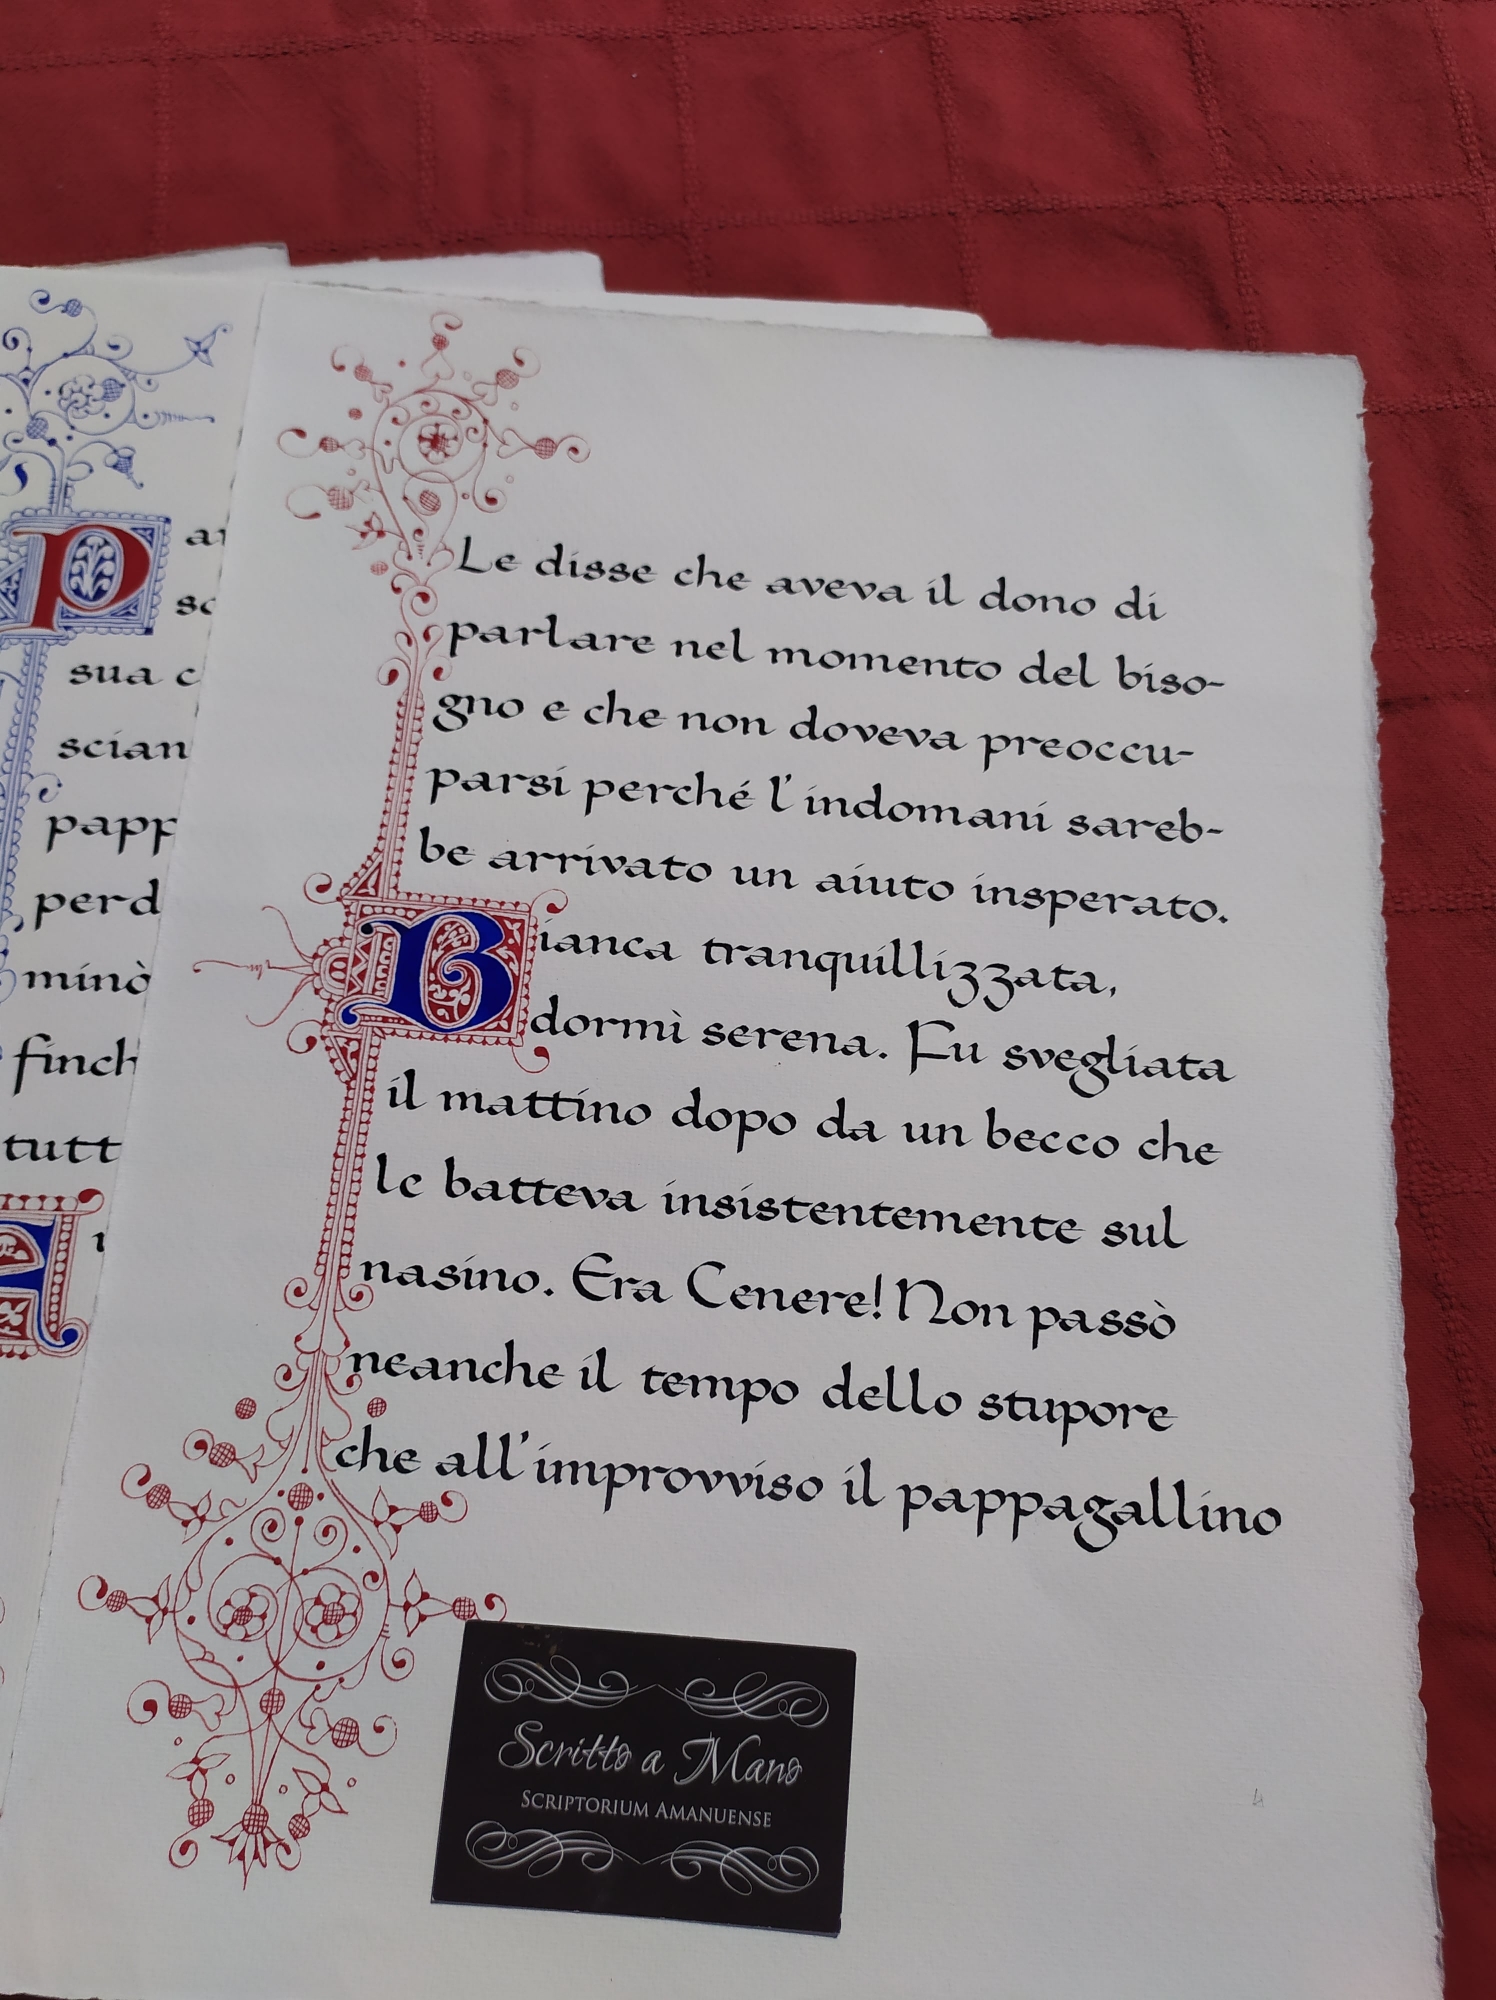 P
sua
A
Le disse che aveva il dono di
parlare nel momento del biso-
gno e che non doveva preoccu-
parsi perché l'indomani sareb-
be arrivato un aiuto insperato.
Bianca tranquillizzata,
dormì serena. Fu svegliata
il mattino dopo da un becco che
le batteva insistentemente sul
nasino. Era Cenere! Non passò
neanche il tempo dello stupore
che all'improvviso il pappagallino
Scritto a Mano
SCRIPTORIUM AMANUENSE